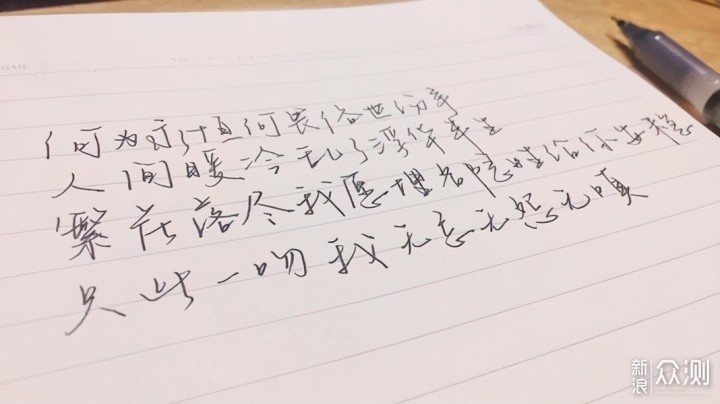 何为疗慎何畏俗世纷争
人间暖冷乱了浮华半生
繁花落尽我愿埋名隐姓给你安稳
只此一吻我无忘无怨无嗔
新浪 众测